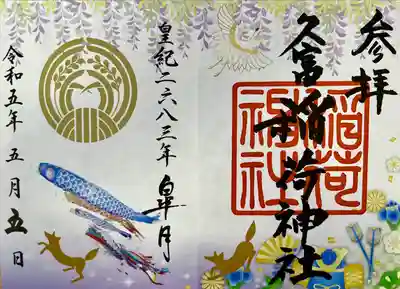 参拝
久富稲荷神社
稲荷
神社
皇紀二六八三年 皐月
令和五年 五月 五日